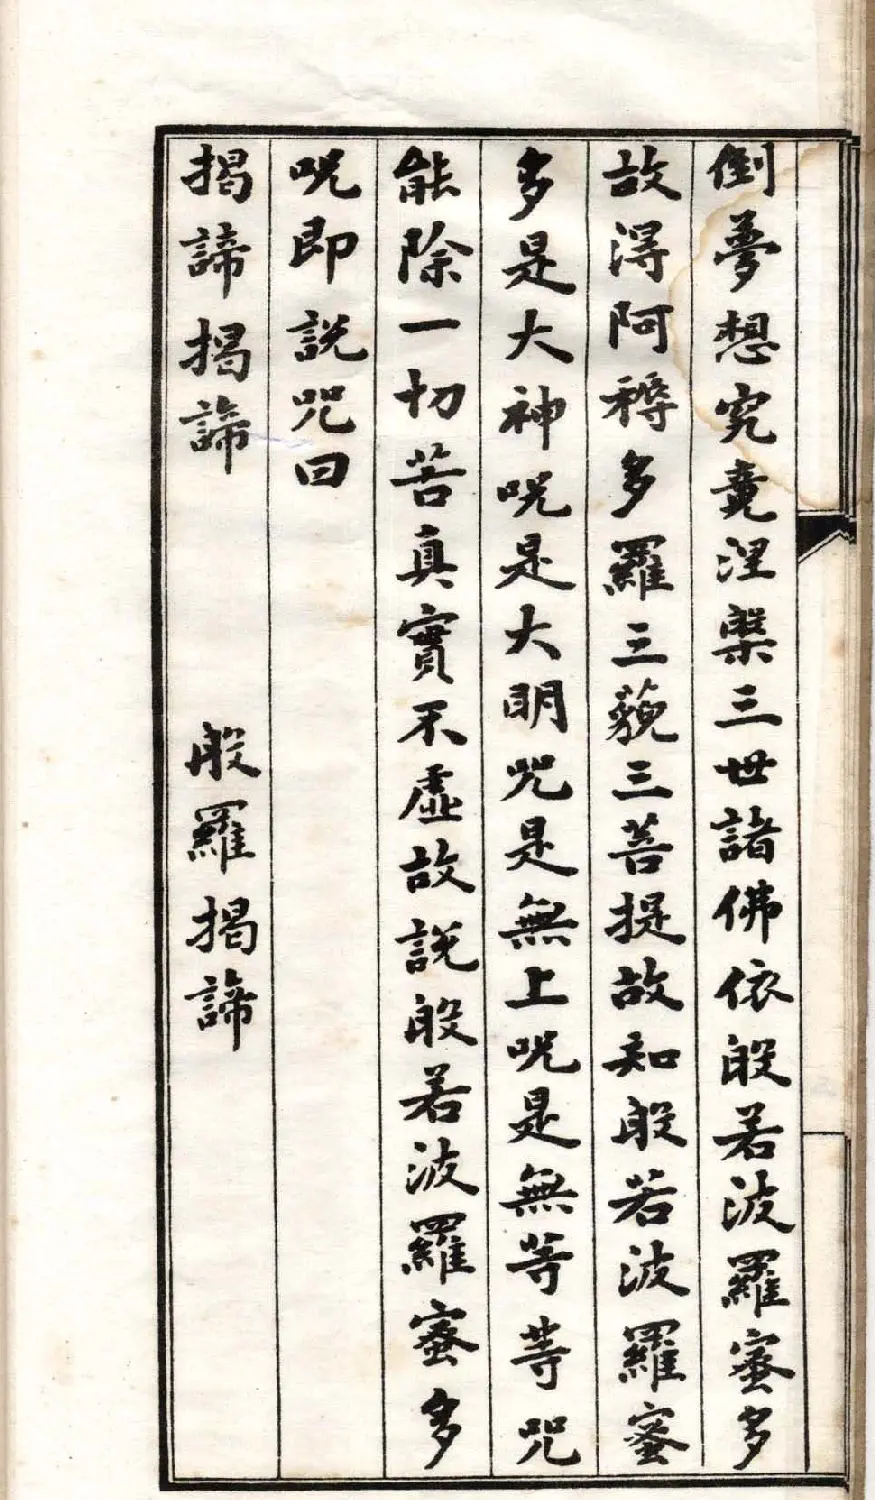 倒夢想究竟涅槃三世諸佛依般若波羅蜜多
故得阿耨多羅三藐三菩提故知般若波羅蜜
多是大神呪是大明咒是無上呪是無等等咒
能除一切苦真實不虛故說般若波羅蜜多
呪即說咒曰
揭諦揭諦 般羅揭諦